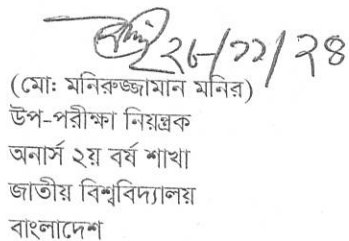 ২৮/১১/২৪
(মো: মনিরুজ্জামান মনির)
উপ-পরীক্ষা নিয়ন্ত্রক
অনার্স ২য় বর্ষ শাখা
জাতীয় বিশ্ববিদ্যালয়
বাংলাদেশ